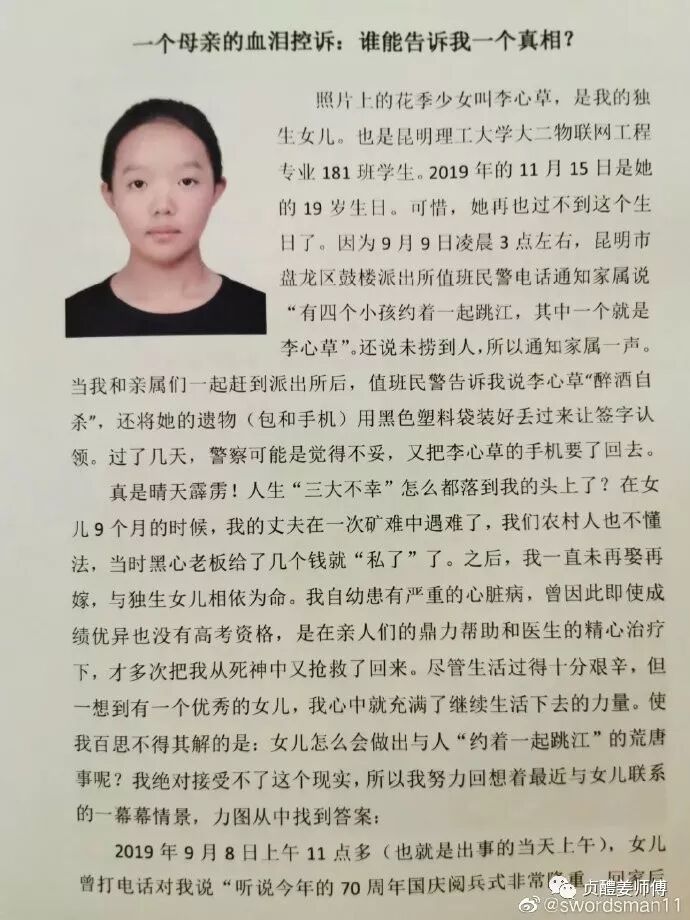 一个母亲的血泪控诉：谁能告诉我一个真相？
照片上的花季少女叫李心草，是我的独
生女儿。也是昆明理工大学大二物联网工程
专业 181 班学生。2019 年的 11 月 15 日是她
的 19 岁生日。可惜，她再也过不到这个生
日了。因为 9 月 9 日凌晨 3 点左右，昆明市
盘龙区鼓楼派出所值班民警电话通知家属说
“有四个小孩约着一起跳江，其中一个就是
李心草”。还说未捞到人，所以通知家属一声。
当我和亲属们一起赶到派出所后，值班民警告诉我说李心草“醉酒自
杀”，还将她的遗物（包和手机）用黑色塑料袋装好丢过来让签字认
领。过了几天，警察可能是觉得不妥，又把李心草的手机要了回去。
真是晴天霹雳！人生“三大不幸”怎么都落到我的头上了？在女
儿 9 个月的时候，我的丈夫在一次矿难中遇难了，我们农村人也不懂
法，当时黑心老板给了几个钱就“私了”了。之后，我一直未再娶再
嫁，与独生女儿相依为命。我自幼患有严重的心脏病，曾因此即使成
绩优异也没有高考资格，是在亲人们的鼎力帮助和医生的精心治疗
下，才多次把我从死神中又抢救了回来。尽管生活过得十分艰辛，但
一想到有一个优秀的女儿，我心中就充满了继续生活下去的力量。使
我百思不得其解的是：女儿怎么会做出与人“约着一起跳江”的荒唐
事呢？我绝对接受不了这个现实，所以我努力回想着最近与女儿联系
的一幕幕情景，力图从中找到答案：
2019 年 9 月 8 日上午 11 点多（也就是出事的当天上午），女儿
曾打电话对我说“听说今年的 70 周年国庆阅兵式非常隆重，回家后
贞醴姜师傅
@swordsman11